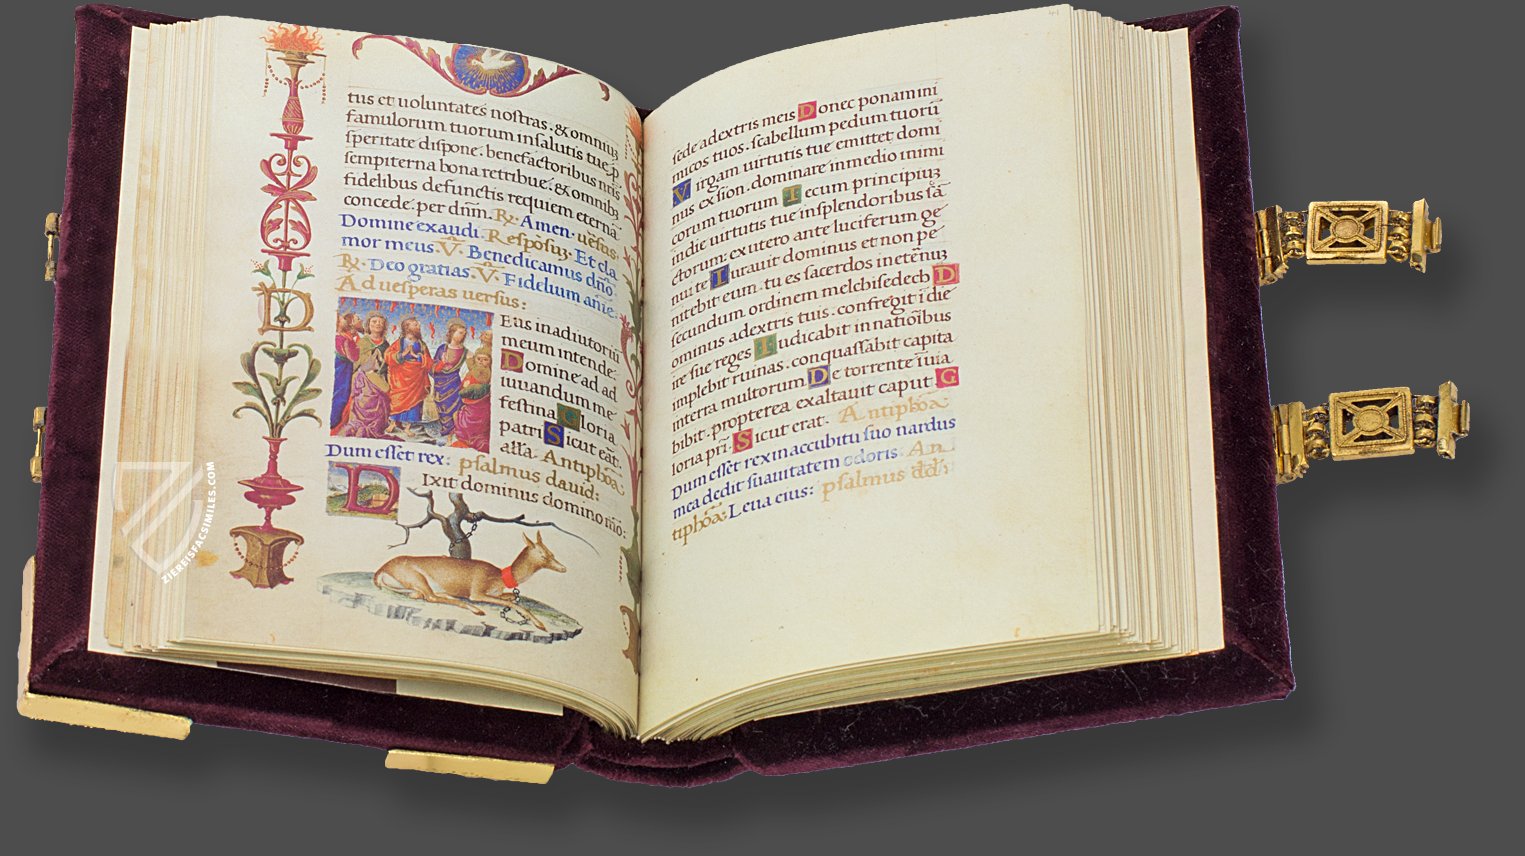 tus et uoluntates nostras. & omniuȝ
famulorum tuorum in salutis tue p
speritate dispone. benefactoribus nris
sempiterna bona retribue. & omnibȝ
fidelibus defunctis requiem eterna
concede. per dnm. ℟. Amen. uersus.
Domine exaudi. Responsuȝ. Et cla
mor meus. ℣. Benedicamus dno
℟. Deo gratias. ℣. Fidelium anie.
Ad uesperas uersus:
D Eus in adiutoriū
meum intende.
Domine ad ad
iuuandum me
festina Gloria.
patri Sicut erāt.
alla. Antiphoa
Dum esset rex: psalmus dauid:
DIxit dominus domino mō:
sede a dextris meis Donec ponam ini
micos tuos. scabellum pedum tuorū
Virgam uirtutis tue emittet domi
nus ex sion. dominare in medio inimi
corum tuorum Tecum principiuȝ
in die uirtutis tue in splendoribus sā
ctorum: ex utero ante luciferum ge
nui te Iurauit dominus et non pe
nitebit eum. tu es sacerdos in eternuȝ
secundum ordinem melchisedech D
ominus a dextris tuis. confregit ī die
ire sue reges Iudicabit in natiōibus
implebit ruinas. conquassabit capita
in terra multorum De torrente ī uia
bibit. propterea exaltauit caput. G
loria pri. Sicut erat. Antiphoa
Dum esset rex in accubitu suo nardus
mea dedit suauitatem odoris An
tiphoa. Leua eius: psalmus dd:
ZIEREISFACSIMILES.COM